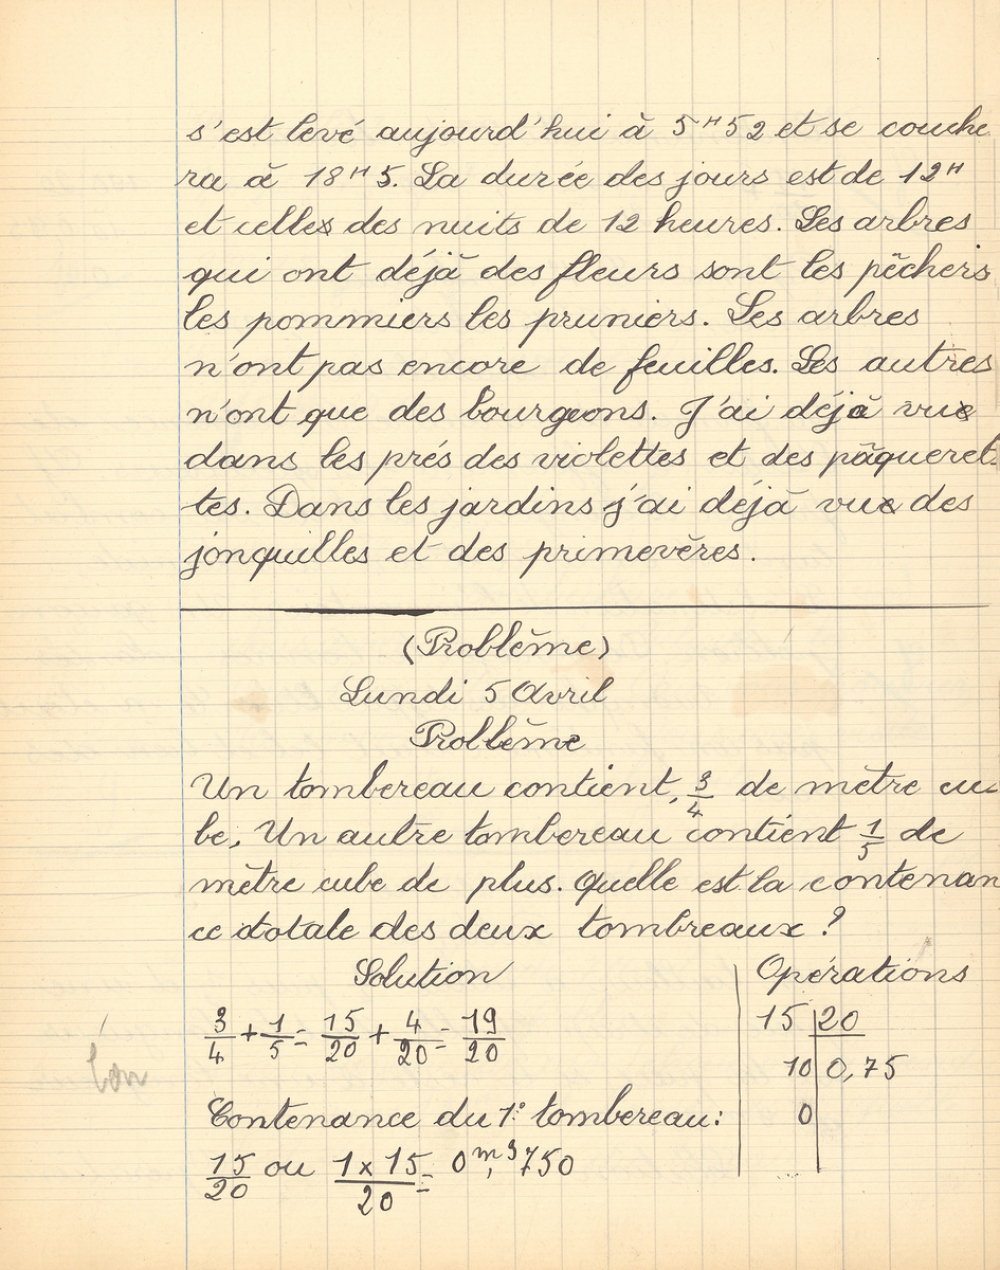 s'est levé aujourd'hui à 5ᴴ52 et se couche
ra à 18ᴴ5. La durée des jours est de 12ᴴ
et celles des nuits de 12 heures. Les arbres
qui ont déjà des fleurs sont les pêchers
les pommiers les pruniers. Les arbres
n'ont pas encore de feuilles. Les autres
n'ont que des bourgeons. J'ai déjà vue
dans les prés des violettes et des pâqueret
tes. Dans les jardins j'ai déjà vue des
jonquilles et des primevères.
(Problème)
Lundi 5 Avril
Problème
Un tombereau contient, 3/4 de mètre cu-
be. Un autre tombereau contient 1/5 de
mètre cube de plus. Quelle est la contenan
ce totale des deux tombreaux ?
Solution
Opérations
3/4 + 1/5 = 15/20 + 4/20 = 19/20
15 | 20
10 | 0,75
0
Bon
Contenance du 1° tombereau:
15/20 ou 1 x 15/20 = 0ᵐ³,750